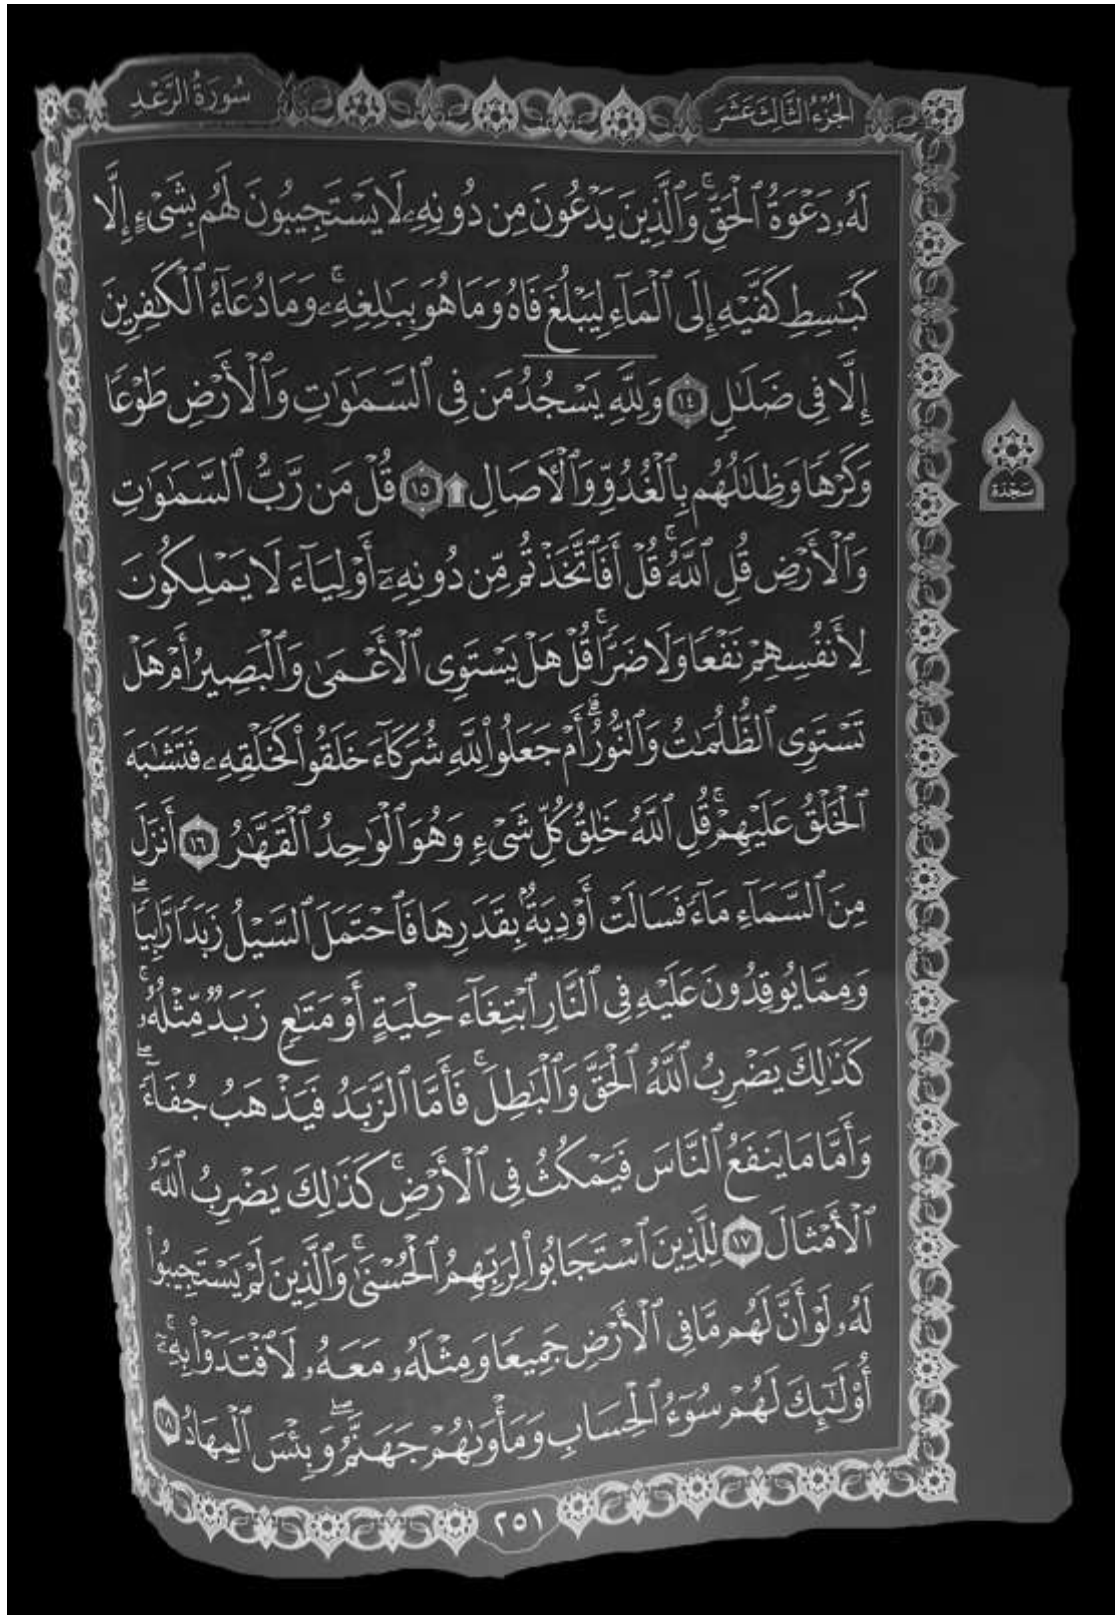 الجُزْءُ الثَّالِثَ عَشَرَ
سُورَةُ الرَّعْدِ
لَهُۥ دَعْوَةُ ٱلْحَقِّۚ وَٱلَّذِينَ يَدْعُونَ مِن دُونِهِۦ لَا يَسْتَجِيبُونَ لَهُم بِشَىْءٍ إِلَّا
كَبَٰسِطِ كَفَّيْهِ إِلَى ٱلْمَآءِ لِيَبْلُغَ فَاهُ وَمَا هُوَ بِبَٰلِغِهِۦۚ وَمَا دُعَآءُ ٱلْكَٰفِرِينَ
إِلَّا فِى ضَلَٰلٍ ١٤ وَلِلَّهِ يَسْجُدُ مَن فِى ٱلسَّمَٰوَٰتِ وَٱلْأَرْضِ طَوْعًا
وَكَرْهًا وَظِلَٰلُهُم بِٱلْغُدُوِّ وَٱلْءَاصَالِ ۩ ١٥ قُلْ مَن رَّبُّ ٱلسَّمَٰوَٰتِ
وَٱلْأَرْضِ قُلِ ٱللَّهُۚ قُلْ أَفَٱتَّخَذْتُم مِّن دُونِهِۦٓ أَوْلِيَآءَ لَا يَمْلِكُونَ
لِأَنفُسِهِمْ نَفْعًا وَلَا ضَرًّاۚ قُلْ هَلْ يَسْتَوِى ٱلْأَعْمَىٰ وَٱلْبَصِيرُ أَمْ هَلْ
تَسْتَوِى ٱلظُّلُمَٰتُ وَٱلنُّورُۗ أَمْ جَعَلُوا۟ لِلَّهِ شُرَكَآءَ خَلَقُوا۟ كَخَلْقِهِۦ فَتَشَٰبَهَ
ٱلْخَلْقُ عَلَيْهِمْۚ قُلِ ٱللَّهُ خَٰلِقُ كُلِّ شَىْءٍ وَهُوَ ٱلْوَٰحِدُ ٱلْقَهَّٰرُ ١٦ أَنزَلَ
مِنَ ٱلسَّمَآءِ مَآءً فَسَالَتْ أَوْدِيَةٌۢ بِقَدَرِهَا فَٱحْتَمَلَ ٱلسَّيْلُ زَبَدًا رَّابِيًاۖ
وَمِمَّا يُوقِدُونَ عَلَيْهِ فِى ٱلنَّارِ ٱبْتِغَآءَ حِلْيَةٍ أَوْ مَتَٰعٍ زَبَدٌ مِّثْلُهُۥۚ
كَذَٰلِكَ يَضْرِبُ ٱللَّهُ ٱلْحَقَّ وَٱلْبَٰطِلَۚ فَأَمَّا ٱلزَّبَدُ فَيَذْهَبُ جُفَآءًۖ
وَأَمَّا مَا يَنفَعُ ٱلنَّاسَ فَيَمْكُثُ فِى ٱلْأَرْضِۚ كَذَٰلِكَ يَضْرِبُ ٱللَّهُ
ٱلْأَمْثَالَ ١٧ لِلَّذِينَ ٱسْتَجَابُوا۟ لِرَبِّهِمُ ٱلْحُسْنَىٰۚ وَٱلَّذِينَ لَمْ يَسْتَجِيبُوا۟
لَهُۥ لَوْ أَنَّ لَهُم مَّا فِى ٱلْأَرْضِ جَمِيعًا وَمِثْلَهُۥ مَعَهُۥ لَٱفْتَدَوْا۟ بِهِۦٓۚ
أُو۟لَٰٓئِكَ لَهُمْ سُوٓءُ ٱلْحِسَابِ وَمَأْوَىٰهُمْ جَهَنَّمُۖ وَبِئْسَ ٱلْمِهَادُ ١٨
سَجْدَة
٢٥١